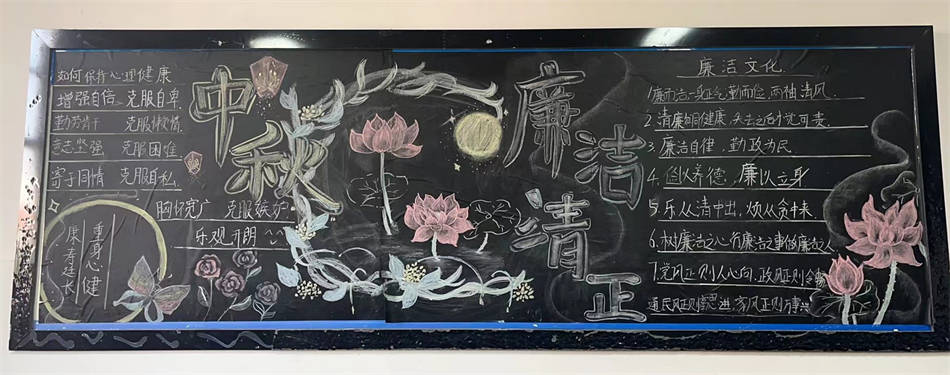 如何保持心理健康
增强自信 克服自卑
勤劳肯干 克服惰情
意志坚强 克服困难
寄予同情 克服自私
胸怀宽广 克服嫉妒
乐观开朗
重身心健
康寿延长
中秋
廉洁清正
廉洁文化
1.廉而洁一身正气,勤而俭,两袖清风.
2.清廉如同健康,失去之后才觉可贵.
3.廉洁自律,勤政为民
4.俭以养德,廉以立身
5.乐从清中出,烦从贪中来.
6.树廉洁之心,行廉洁之事做廉洁之人
7.党风正则人心向,政风正则令畅
通民风正则 进,家风正则万事兴